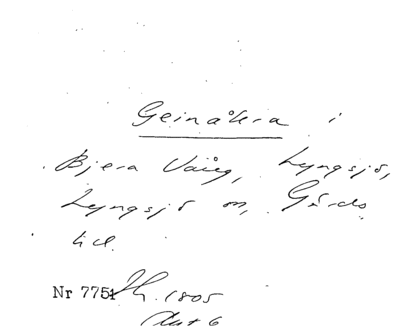 Geinåkra i
Bjera Vång, Lyngsjö,
Lyngsjö sn, Gärds
hd.
Nr 7751 1805
Akt 6